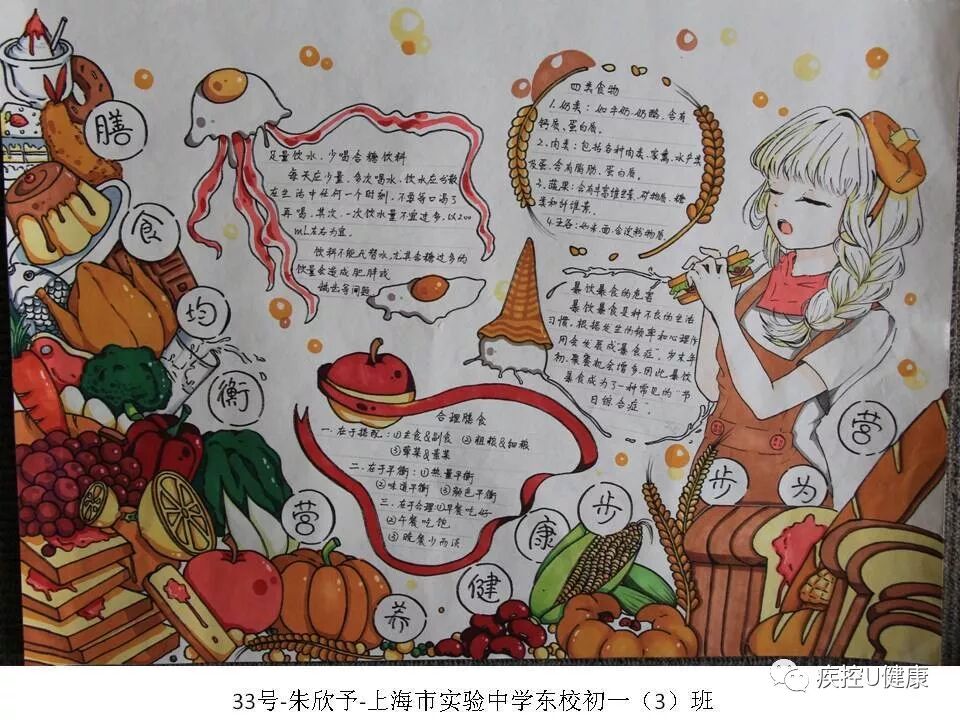 膳
食
均
衡
营
养
健
康
步
步
为
营
足量饮水、少喝含糖饮料
每天应少量、多次喝水,饮水应分散
在生活中任何一个时刻,不要等口渴了
再喝。其次,一次饮水量不宜过多,以200
mL左右为宜。
饮料不能代替水,尤其含糖过多的
饮量会造成肥胖或
龋齿等问题
四类食物
1.奶类:如牛奶、奶酪,含有
钙质、蛋白质。
2.肉类:包括各种肉类、家禽、水产类
及蛋,含有脂肪、蛋白质。
3.蔬果:含有丰富维生素、矿物质、糖
类和纤维素。
4.主谷:如米、面,含淀粉物质。
暴饮暴食的危害
暴饮暴食是种不良的生活
习惯,根据发生的频率和心理作
用会发展成“暴食症”。岁末年
初,聚宴机会增多,因此,暴饮
暴食成为了一种常见的“节
日综合症”。
合理膳食
一.在于搭配:①主食&副食 ②粗粮&细粮
③荤菜&素菜
二.在于平衡:①热量平衡
②味道平衡 ③颜色平衡
三.在于合理①早餐吃好
②午餐吃饱
③晚餐少而淡
疾控U健康
33号-朱欣予-上海市实验中学东校初一(3)班